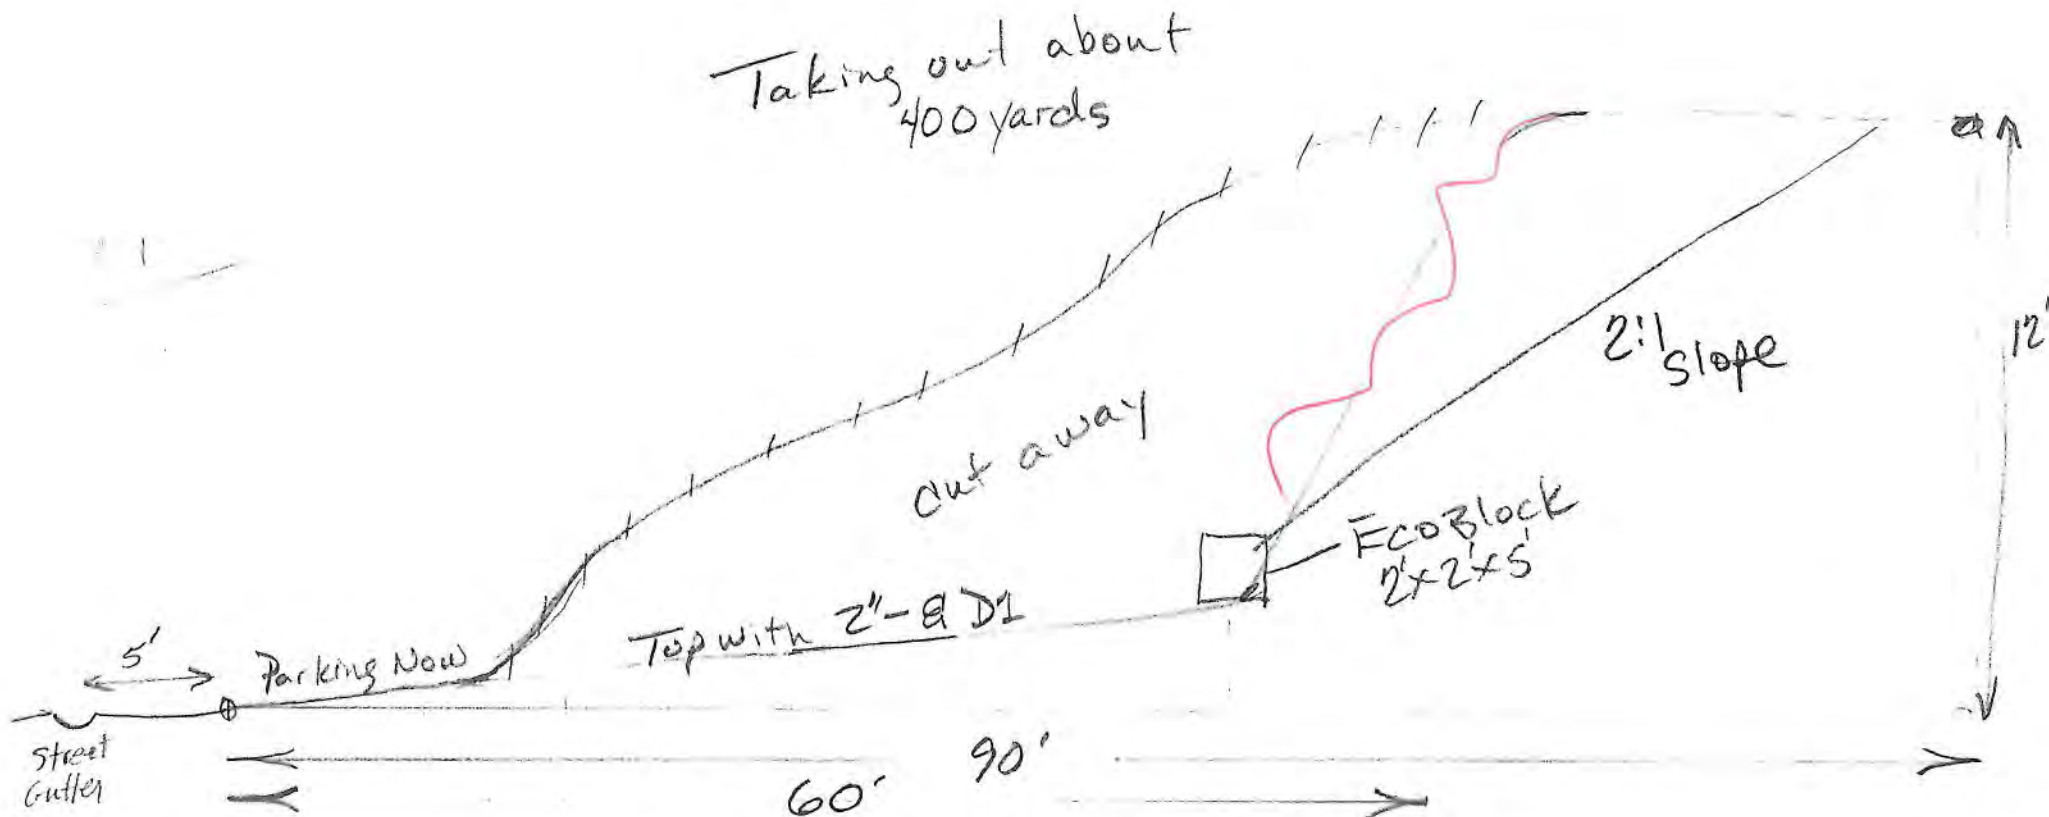 Taking out about
400 yards
12'
2:1
Slope
cut away
EcoBlock
2'x2'x5'
Top with 2"- D1
5'
Parking Now
Street
Gutter
90'
60'